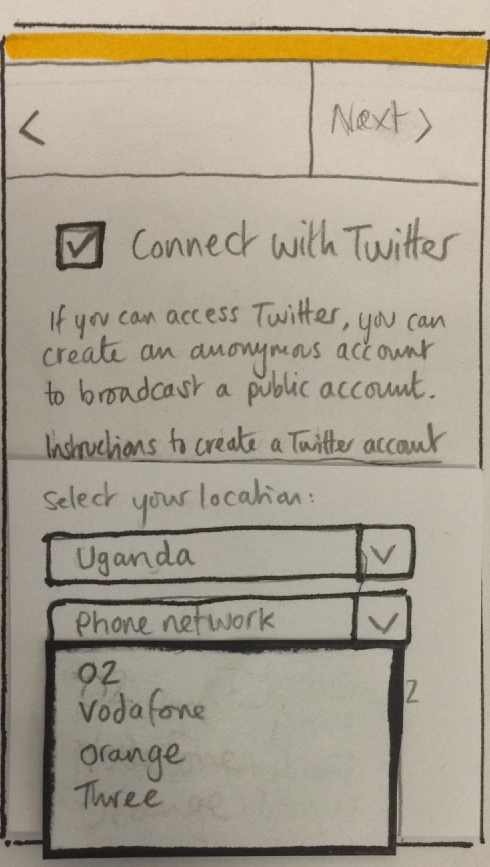 <
Next >
Connect with Twitter
If you can access Twitter, you can
create an anonymous account
to broadcast a public account.
Instructions to create a Twitter account
Select your location:
Uganda
Phone network
2
O2
Vodafone
Orange
Three